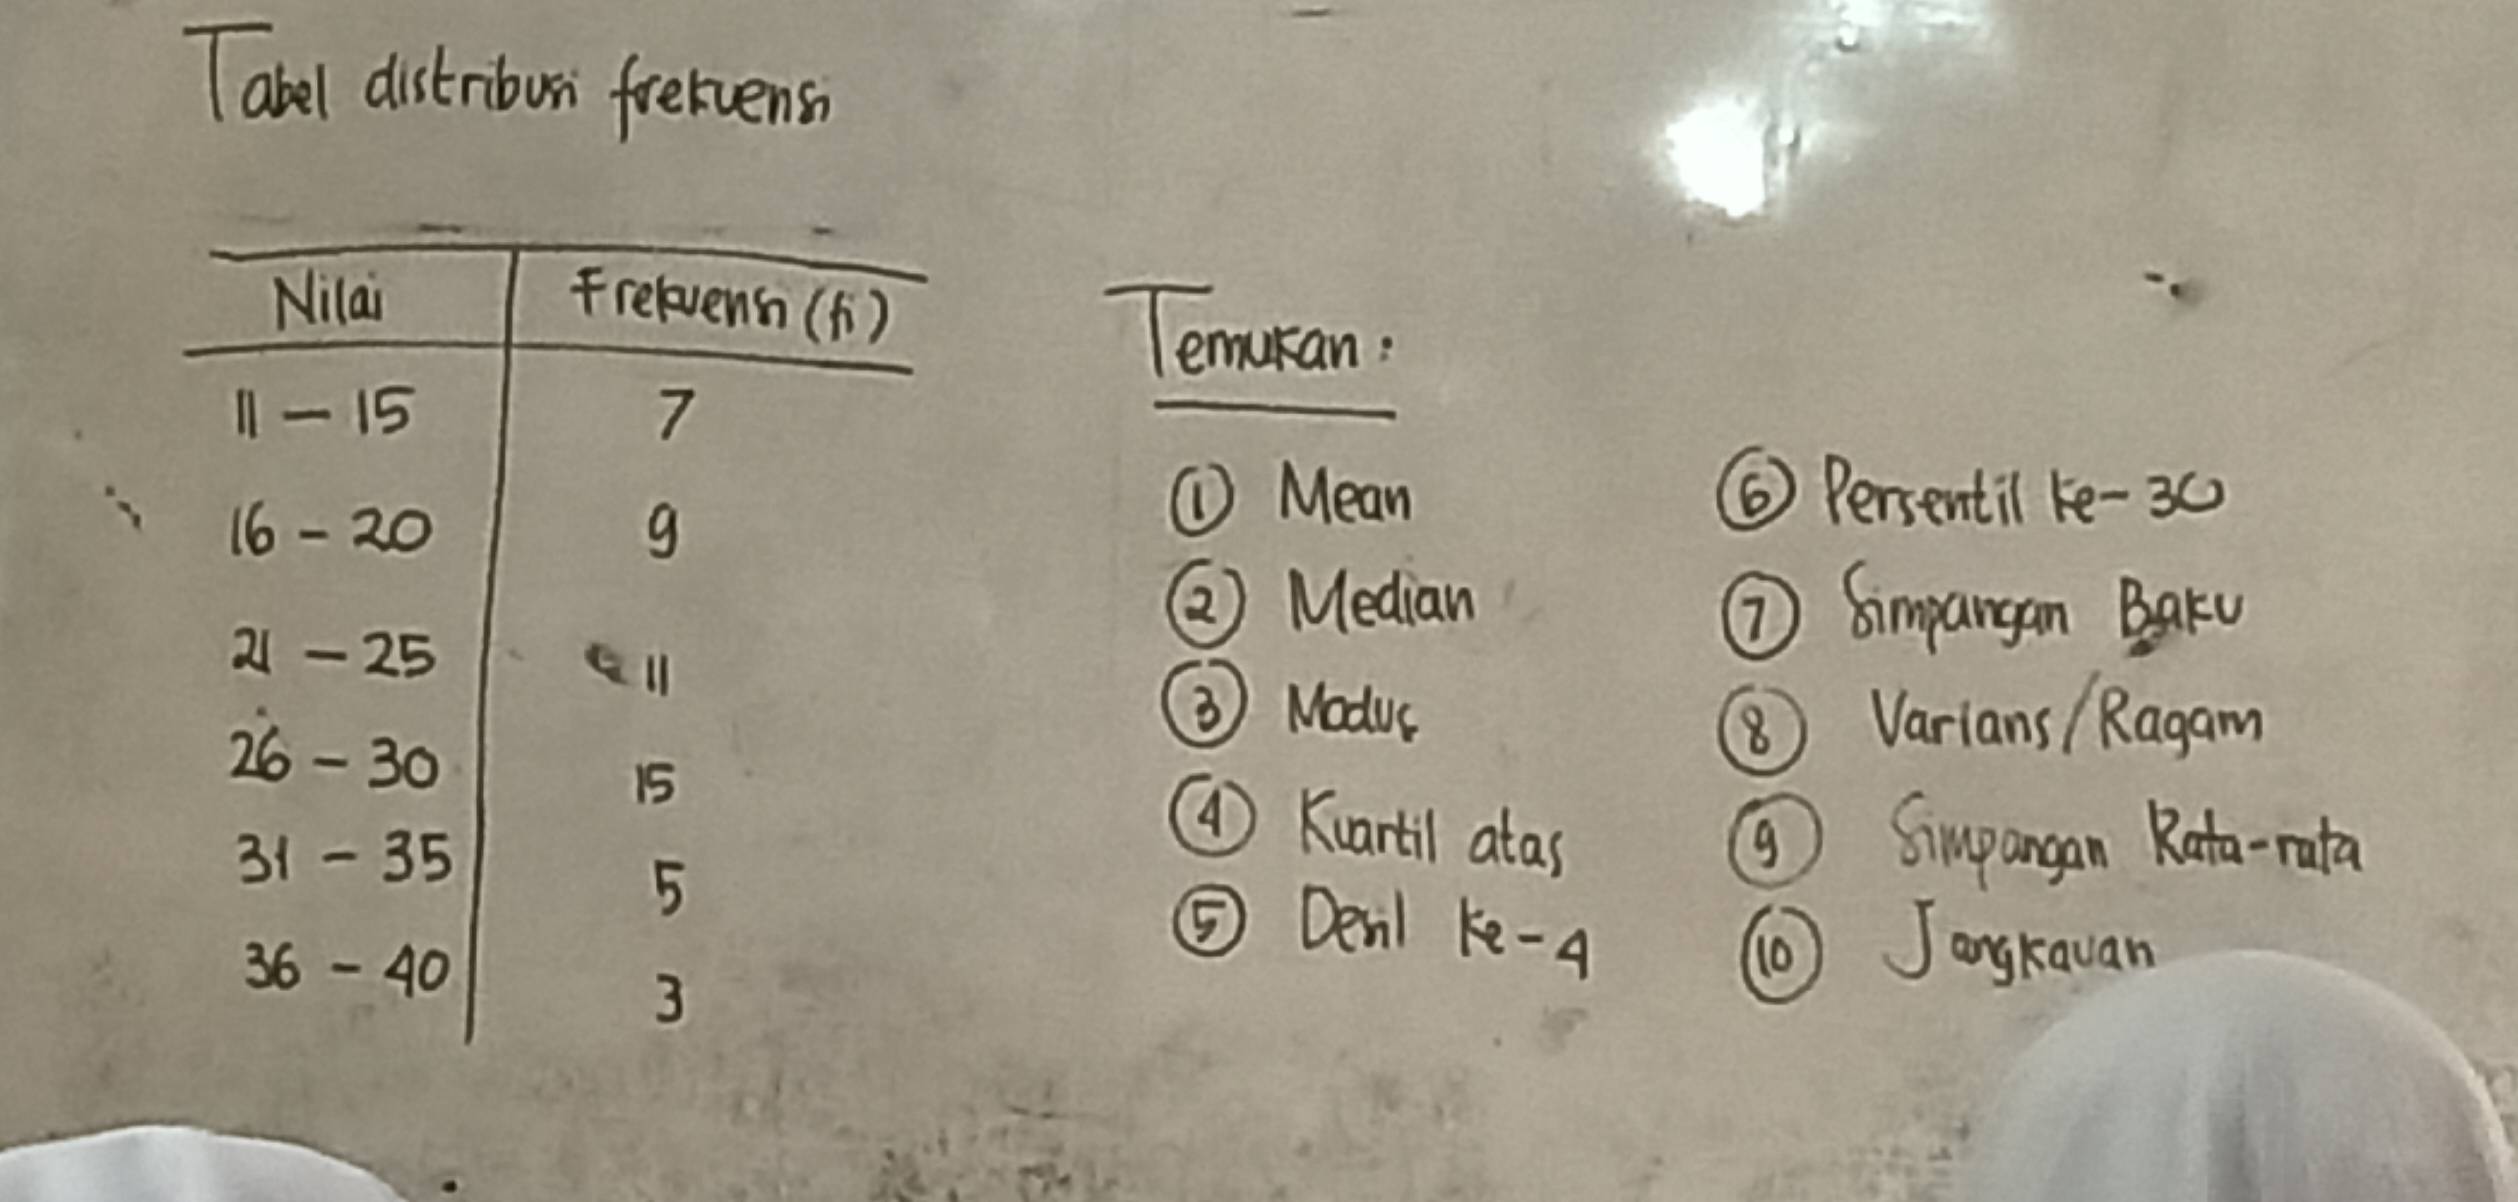 Tabel distribusi frekuensi
Nilai Frekuensi (fi)
11 - 15 7
16 - 20 9
21 - 25 11
26 - 30 15
31 - 35 5
36 - 40 3
Temukan :
① Mean
② Median
③ Modus
④ Kuartil atas
⑤ Desil ke-4
⑥ Persentil ke-30
⑦ Simpangan Baku
⑧ Varians/Ragam
⑨ Simpangan Rata-rata
⑩ Jangkauan